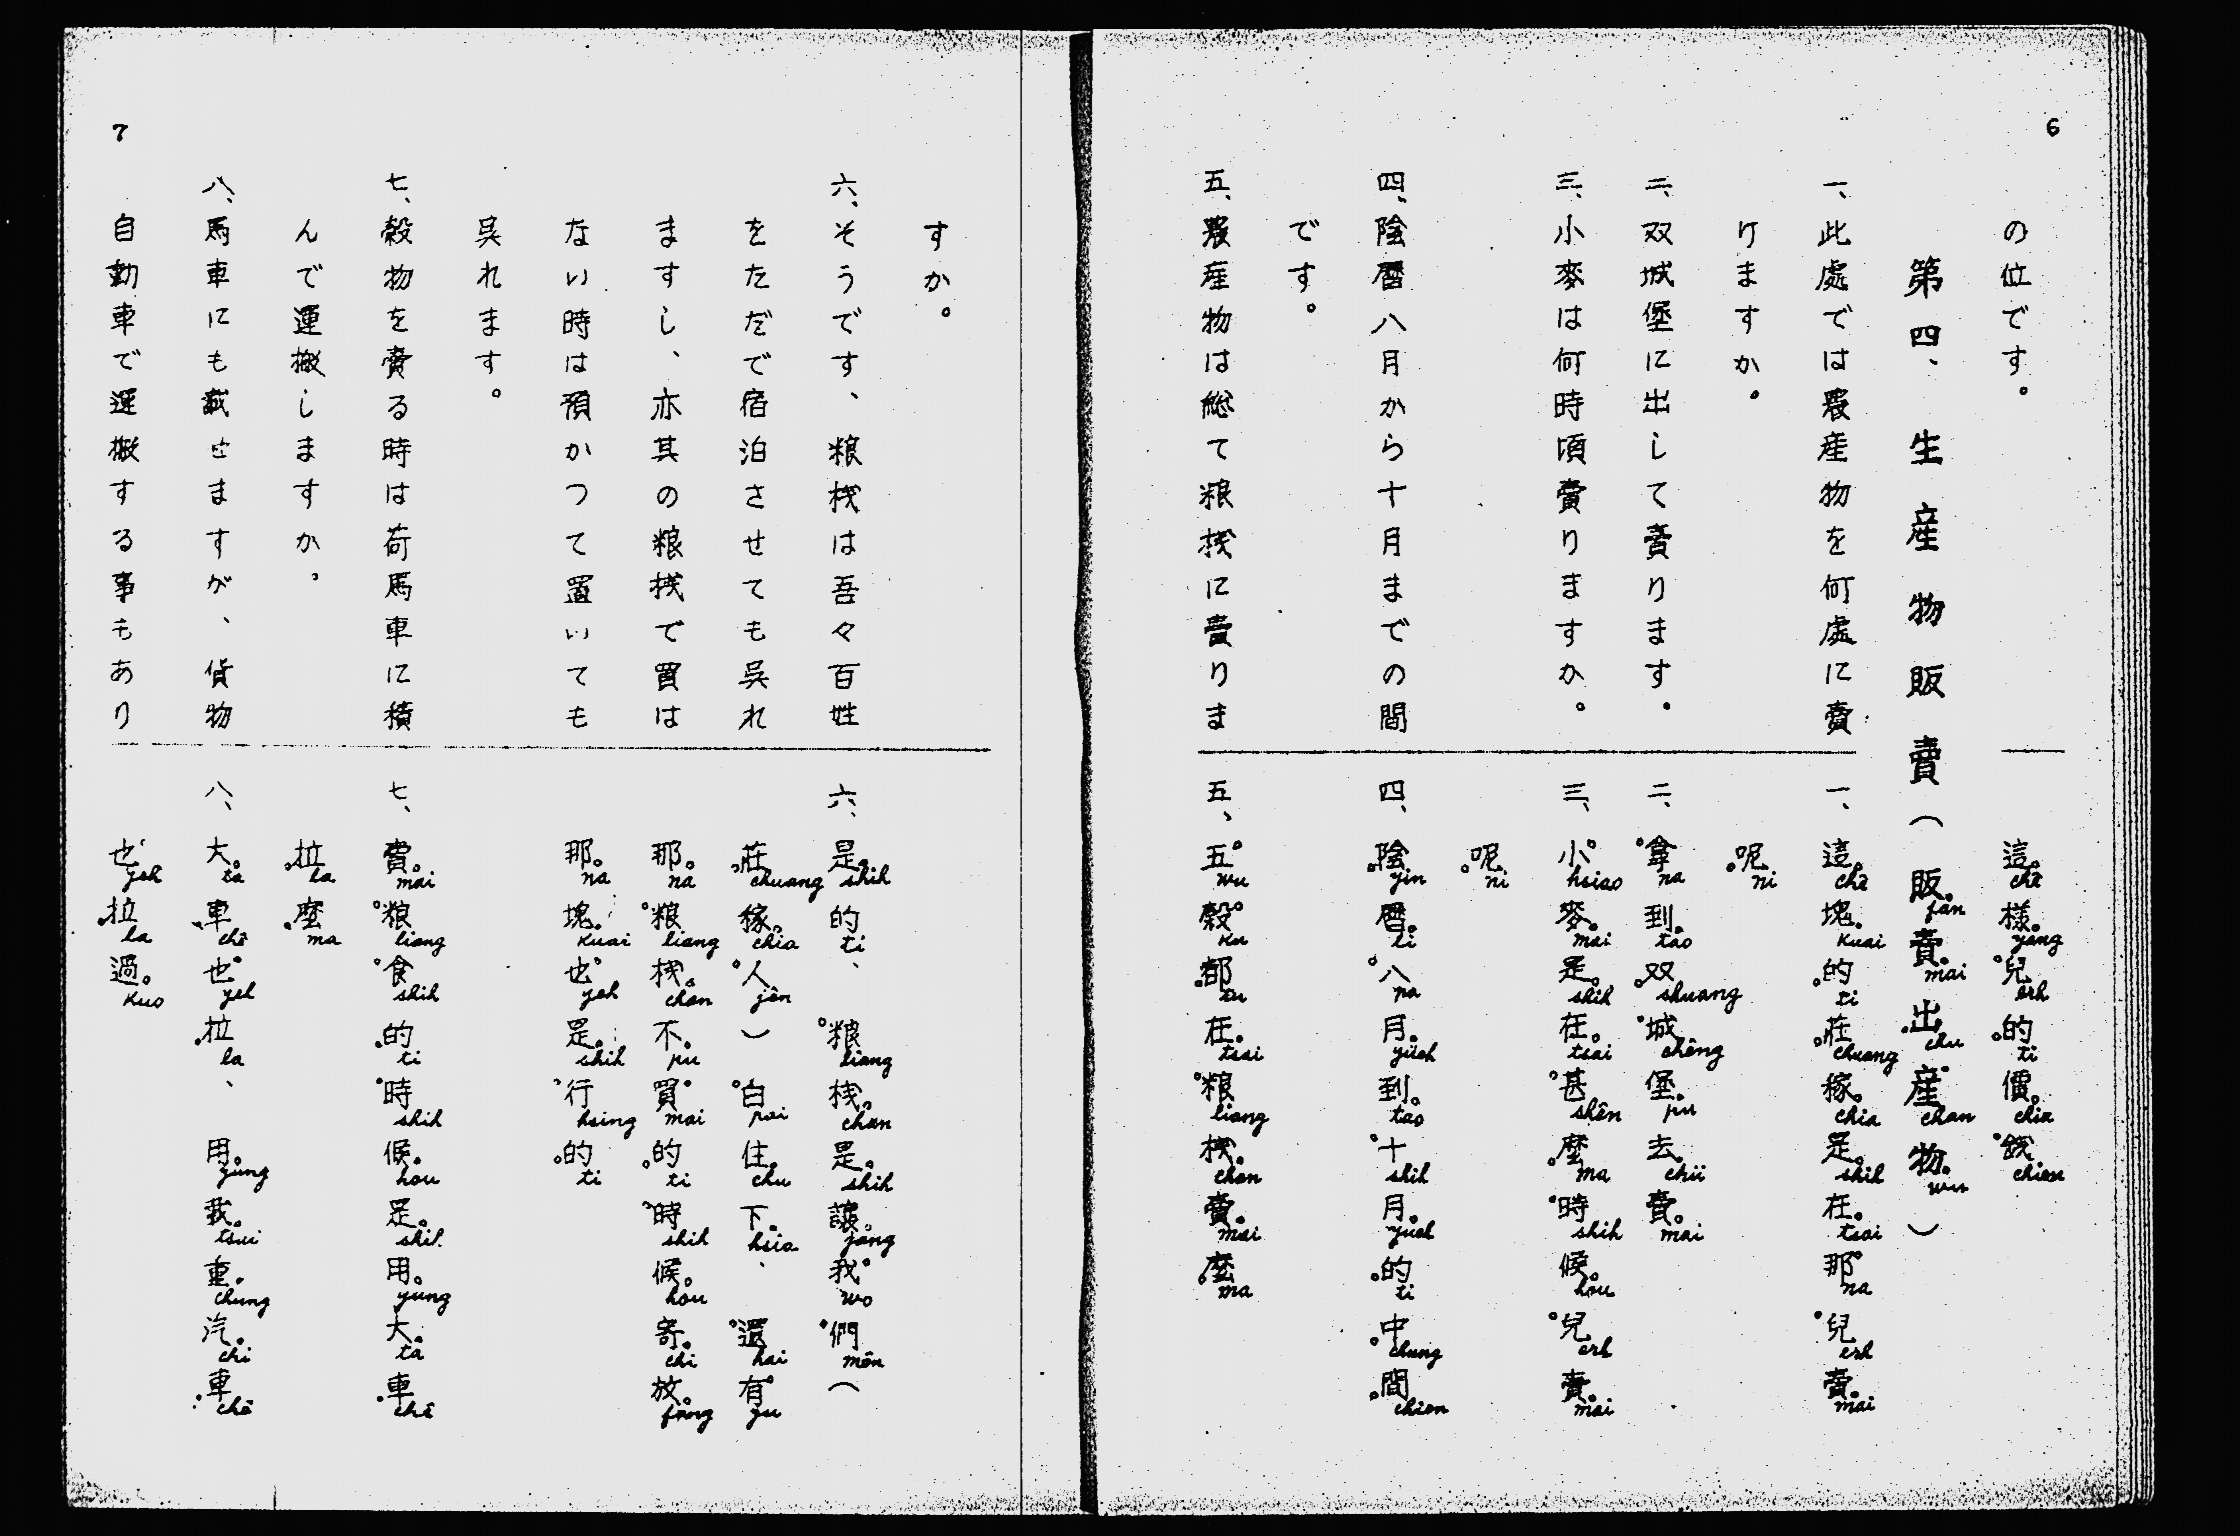 6
の位です。
這樣兒的價錢
chê yang erh ti chia chien
第四、生産物販賣（販賣出産物）
fan mai chu chan wu
一、此處では農産物を何處に賣
りますか。
二、双城堡に出して賣ります。
三、小麥は何時頃賣りますか。
四、陰暦八月から十月までの間
です。
五、農産物は総て粮桟に賣りま
一、這塊的莊稼是在那兒賣
chê kuai ti chuang chia shih tsai na erh mai
呢
ni
二、拿到双城堡去賣
na tao shuang chêng pu chü mai
三、小麥是在甚麼時候兒賣
hsiao mai shih tsai shên ma shih hou erh mai
呢
ni
四、陰暦八月到十月的中間
yin li pa yüeh tao shih yüeh ti chung chien
五、五穀都在粮桟賣麼
wu ku tu tsai liang chan mai ma
7
すか。
六、そうです、粮桟は吾々百姓
をただで宿泊させても呉れ
ますし、亦其の粮桟で買は
ない時は預かつて置いても
呉れます。
七、穀物を賣る時は荷馬車に積
んで運搬しますか。
八、馬車にも載せますが、貨物
自動車で運搬する事もあり
六、是的、粮桟是讓我們（
shih ti liang chan shih jang wo mên
莊稼人）白住下、還有
chuang chia jên pai chu hsia hai yu
那粮桟不買的時候寄放
na liang chan pu mai ti shih hou chi fang
那塊也是行的
na kuai yeh shih hsing ti
七、賣粮食的時候是用大車
mai liang shih ti shih hou shih yung ta chê
拉麼
la ma
八、大車也拉、用載重汽車
ta chê yeh la yung tsai chung chi chê
也拉過
yeh la kuo